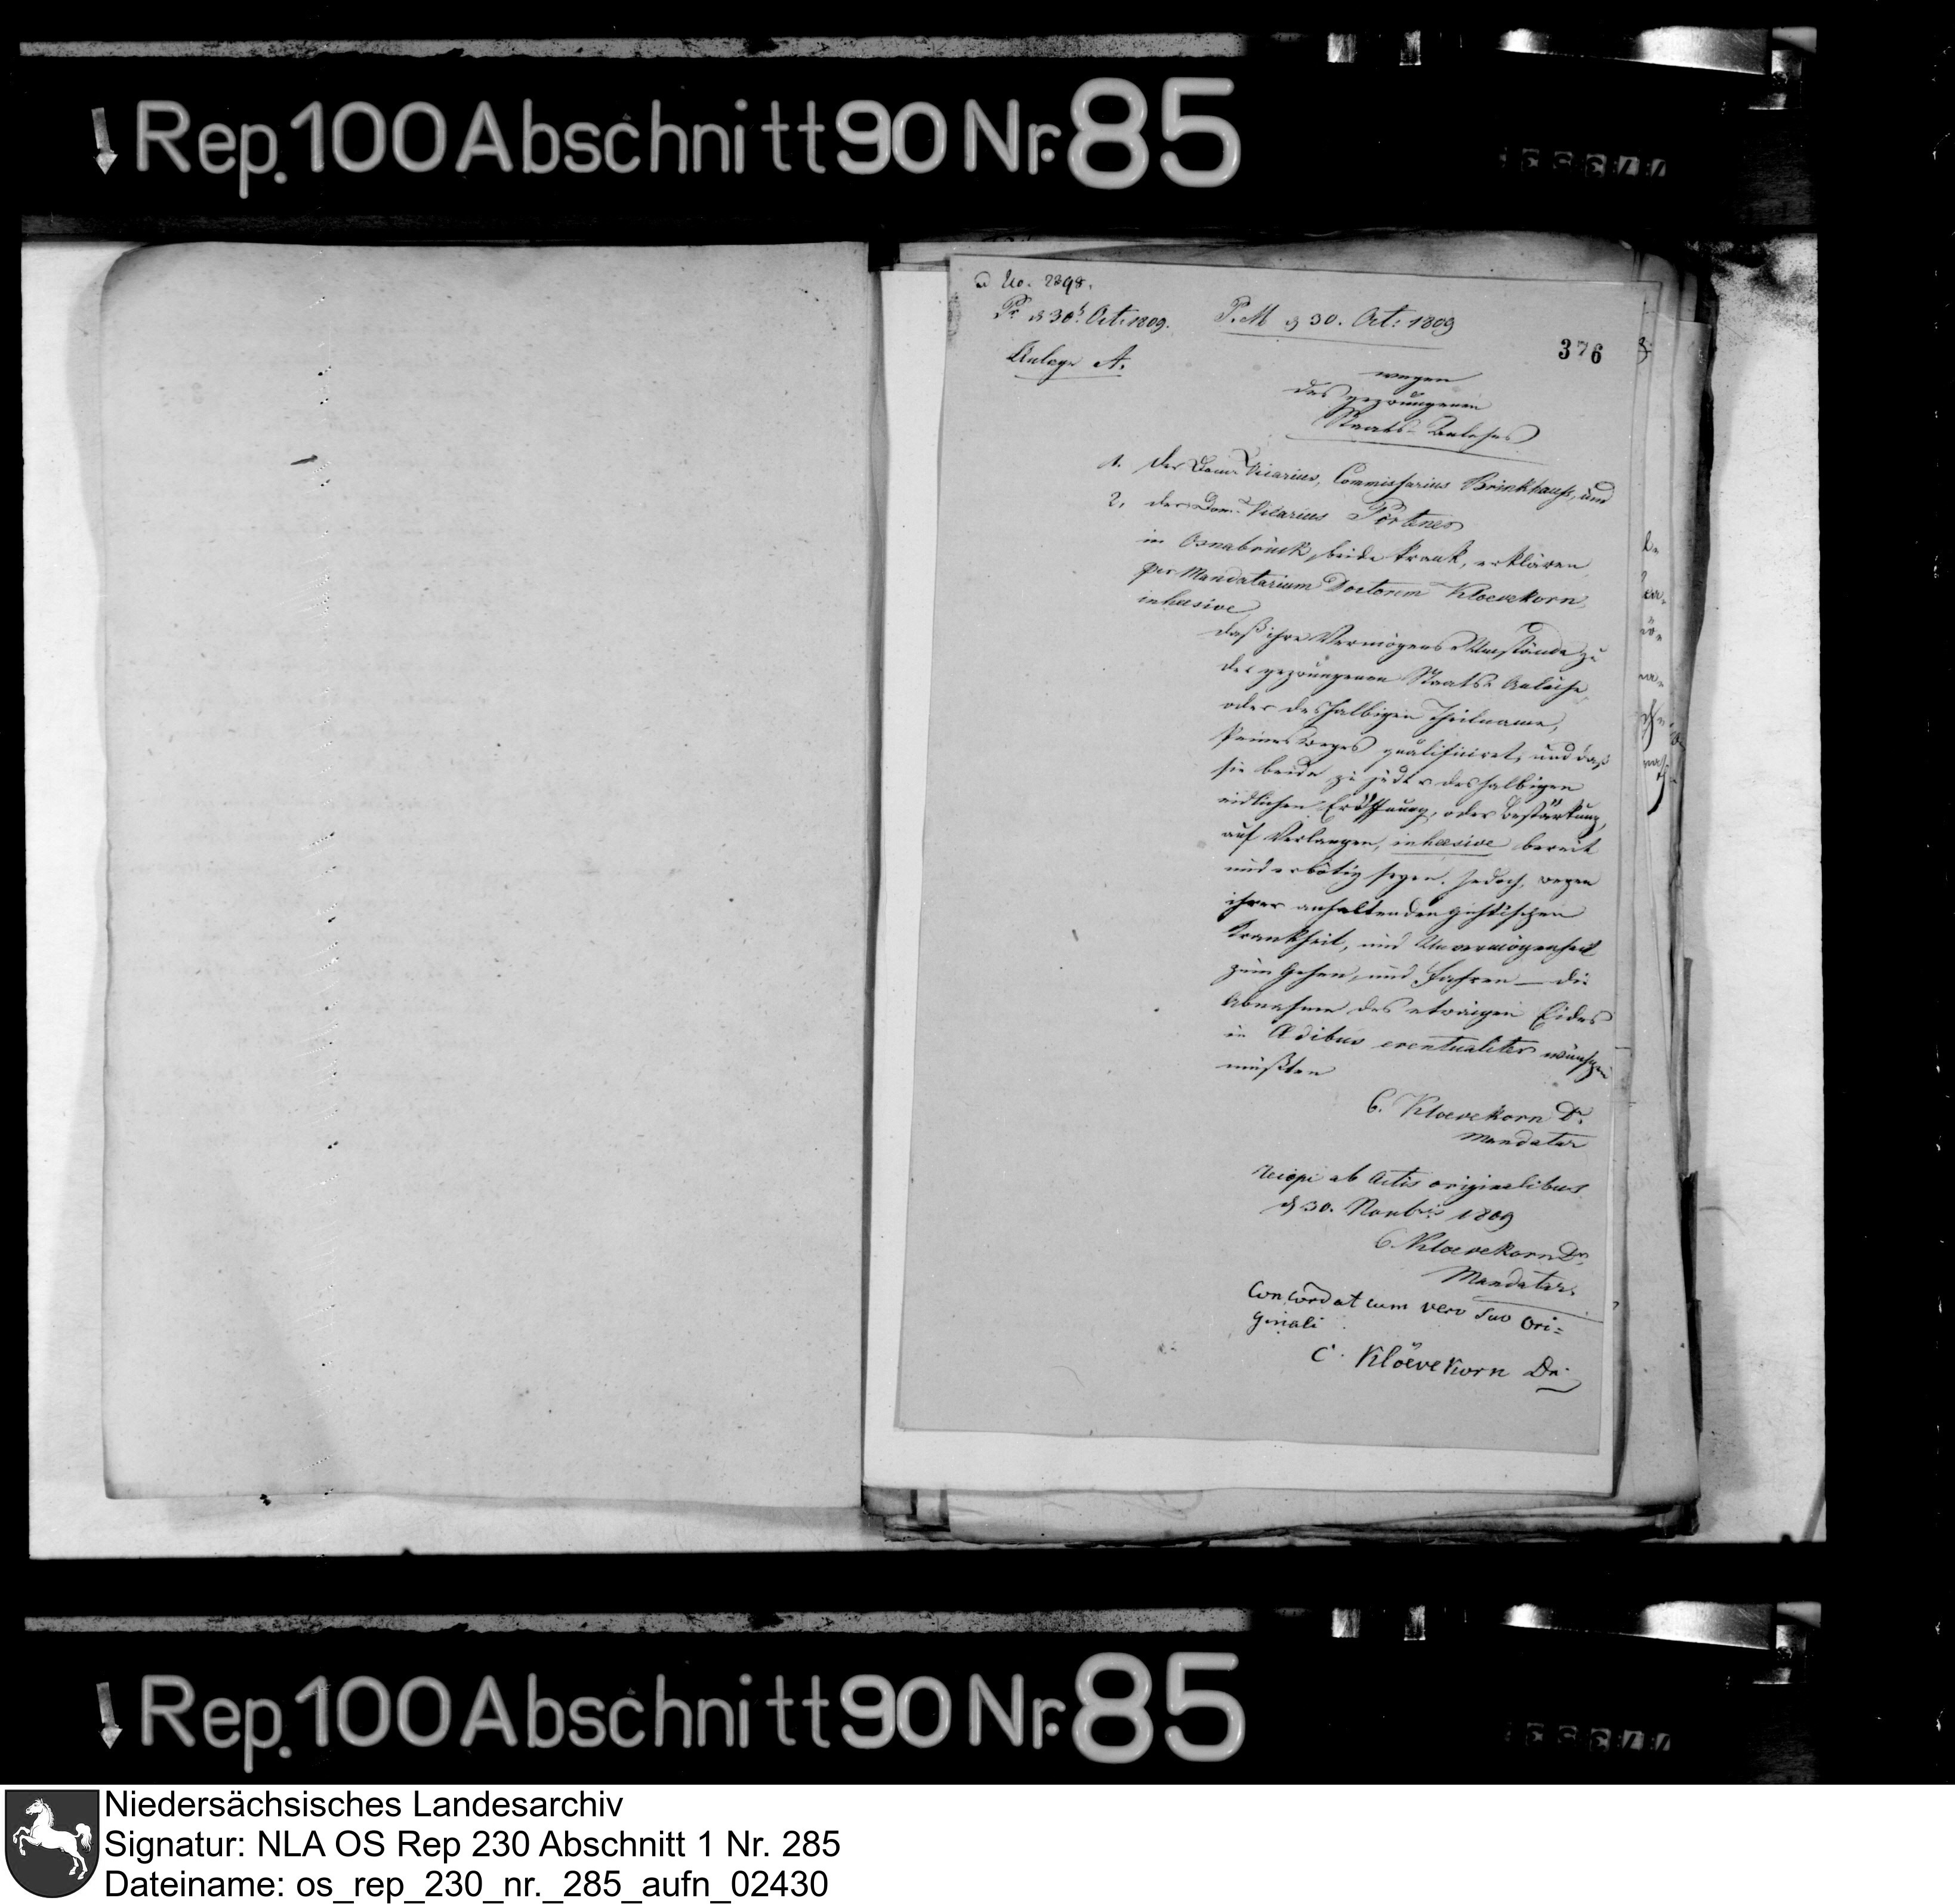 Rep. 100 Abschnitt 90 Nr. 85
ad No. 2898.
Pr. d 30t. Oct. 1809.
P.M d 30. Oct: 1809
Anlage A.
376
wegen
des gezwungenen
Staats-Anlehns
1. der Dom Vicarius, Commissarius Brinkhauß, und
2. der Dom Vicarius Pörtner
in Osnabrück, beide krank, erklären
per Mandatarium Doctorem Kloevekorn
inhaesive
daß ihre Vermögens Umstände zu
der gezwungenen Staats-Anleihe
oder deshalbigen Theilname,
keinesweges qualificiret, und daß
sie beide zu jeder deshalbigen
eidlichen Eröffnung, oder Bestärkung,
auf Verlangen, inhaesive bereit
und erbötig seyen. Jedoch, wegen
ihrer anhaltenden gichtischen
Krankheit, und Unvermögenheit
zum Gehen, und Fahren — die
Abnahme des etwaigen Eides
in Aedibus eventualiter wünschen
müßten
C. Kloevekorn Dr.
Mandatar
recepi ab Actis originalibus
d 30. Novbris 1809
C. Kloevekorn Dr.
Mandatar.
Concordat cum vero suo Ori=
ginali
C. Klöevekorn Dr.
Rep. 100 Abschnitt 90 Nr. 85
Niedersächsisches Landesarchiv
Signatur: NLA OS Rep 230 Abschnitt 1 Nr. 285
Dateiname: os_rep_230_nr._285_aufn_02430